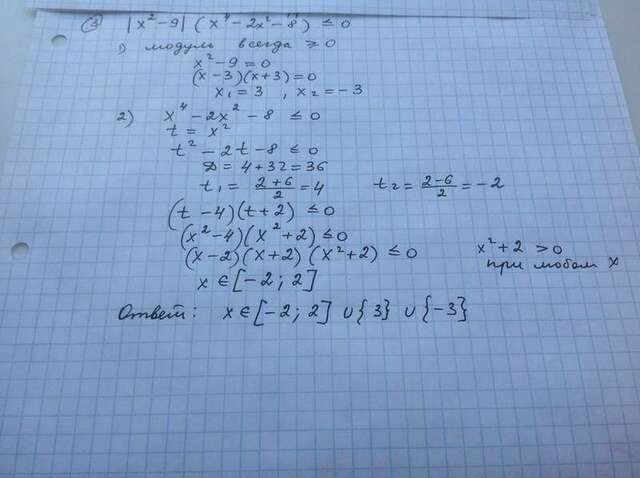 ③ |x² − 9| (x⁴ − 2x² − 8) ≤ 0
1) модуль всегда ≥ 0
x² − 9 = 0
(x − 3)(x + 3) = 0
x₁ = 3 , x₂ = −3
2) x⁴ − 2x² − 8 ≤ 0
t = x²
t² − 2t − 8 ≤ 0
D = 4 + 32 = 36
t₁ = (2+6)/2 = 4 t₂ = (2−6)/2 = −2
(t − 4)(t + 2) ≤ 0
(x² − 4)(x² + 2) ≤ 0
(x − 2)(x + 2)(x² + 2) ≤ 0 x² + 2 > 0
при любом x
x ∈ [−2; 2]
Ответ: x ∈ [−2; 2] ∪ {3} ∪ {−3}